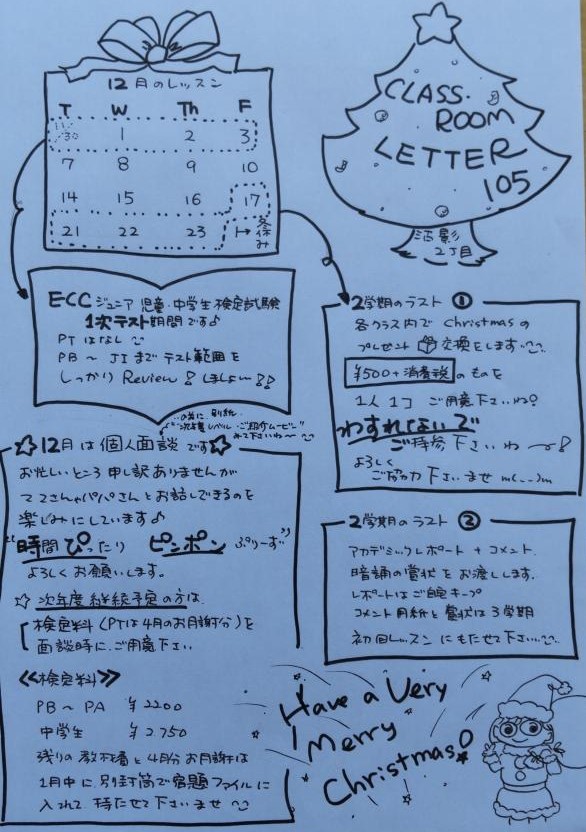 12月のレッスン
T W Th F
11/30 1 2 3
7 8 9 10
14 15 16 17
21 22 23 冬休み
CLASS・
ROOM
LETTER
105
2丁目
ECCジュニア 児童・中学生検定試験
1次テスト期間です♪
PTはなし
PB〜JIまでテスト範囲を
しっかり Review!しましょ〜!♪
☆12月は個人面談です☆
お忙しいところ申し訳ありませんが
ママさんやパパさんとお話しできるのを
楽しみにしています♪
"時間ぴったり ピンポン ぷりーず"
よろしくお願いします。
☆次年度継続予定の方は
検定料(PTは4月のお月謝分)を
面談時にご用意下さい
≪検定料≫
PB〜PA ¥2200
中学生 ¥2.750
残りの教材費と4月分お月謝は
1月中に別封筒で宿題ファイルに
入れて持たせて下さいませ
2学期のラスト①
各クラス内でChristmasの
プレゼント交換をします
¥500+消費税のものを
1人1コご用意下さいね!
わすれないで
ご持参下さいね〜!
よろしく
ご協力下さいませm(_ _)m
2学期のラスト②
アカデミックレポート+コメント
暗誦の賞状をお渡しします。
レポートはご自宅キープ
コメント用紙と賞状は3学期
初回レッスンにもたせて下さい
Have a Very
Merry
Christmas!